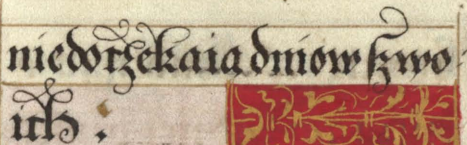 niedorzekaią dniow szwo
ich .